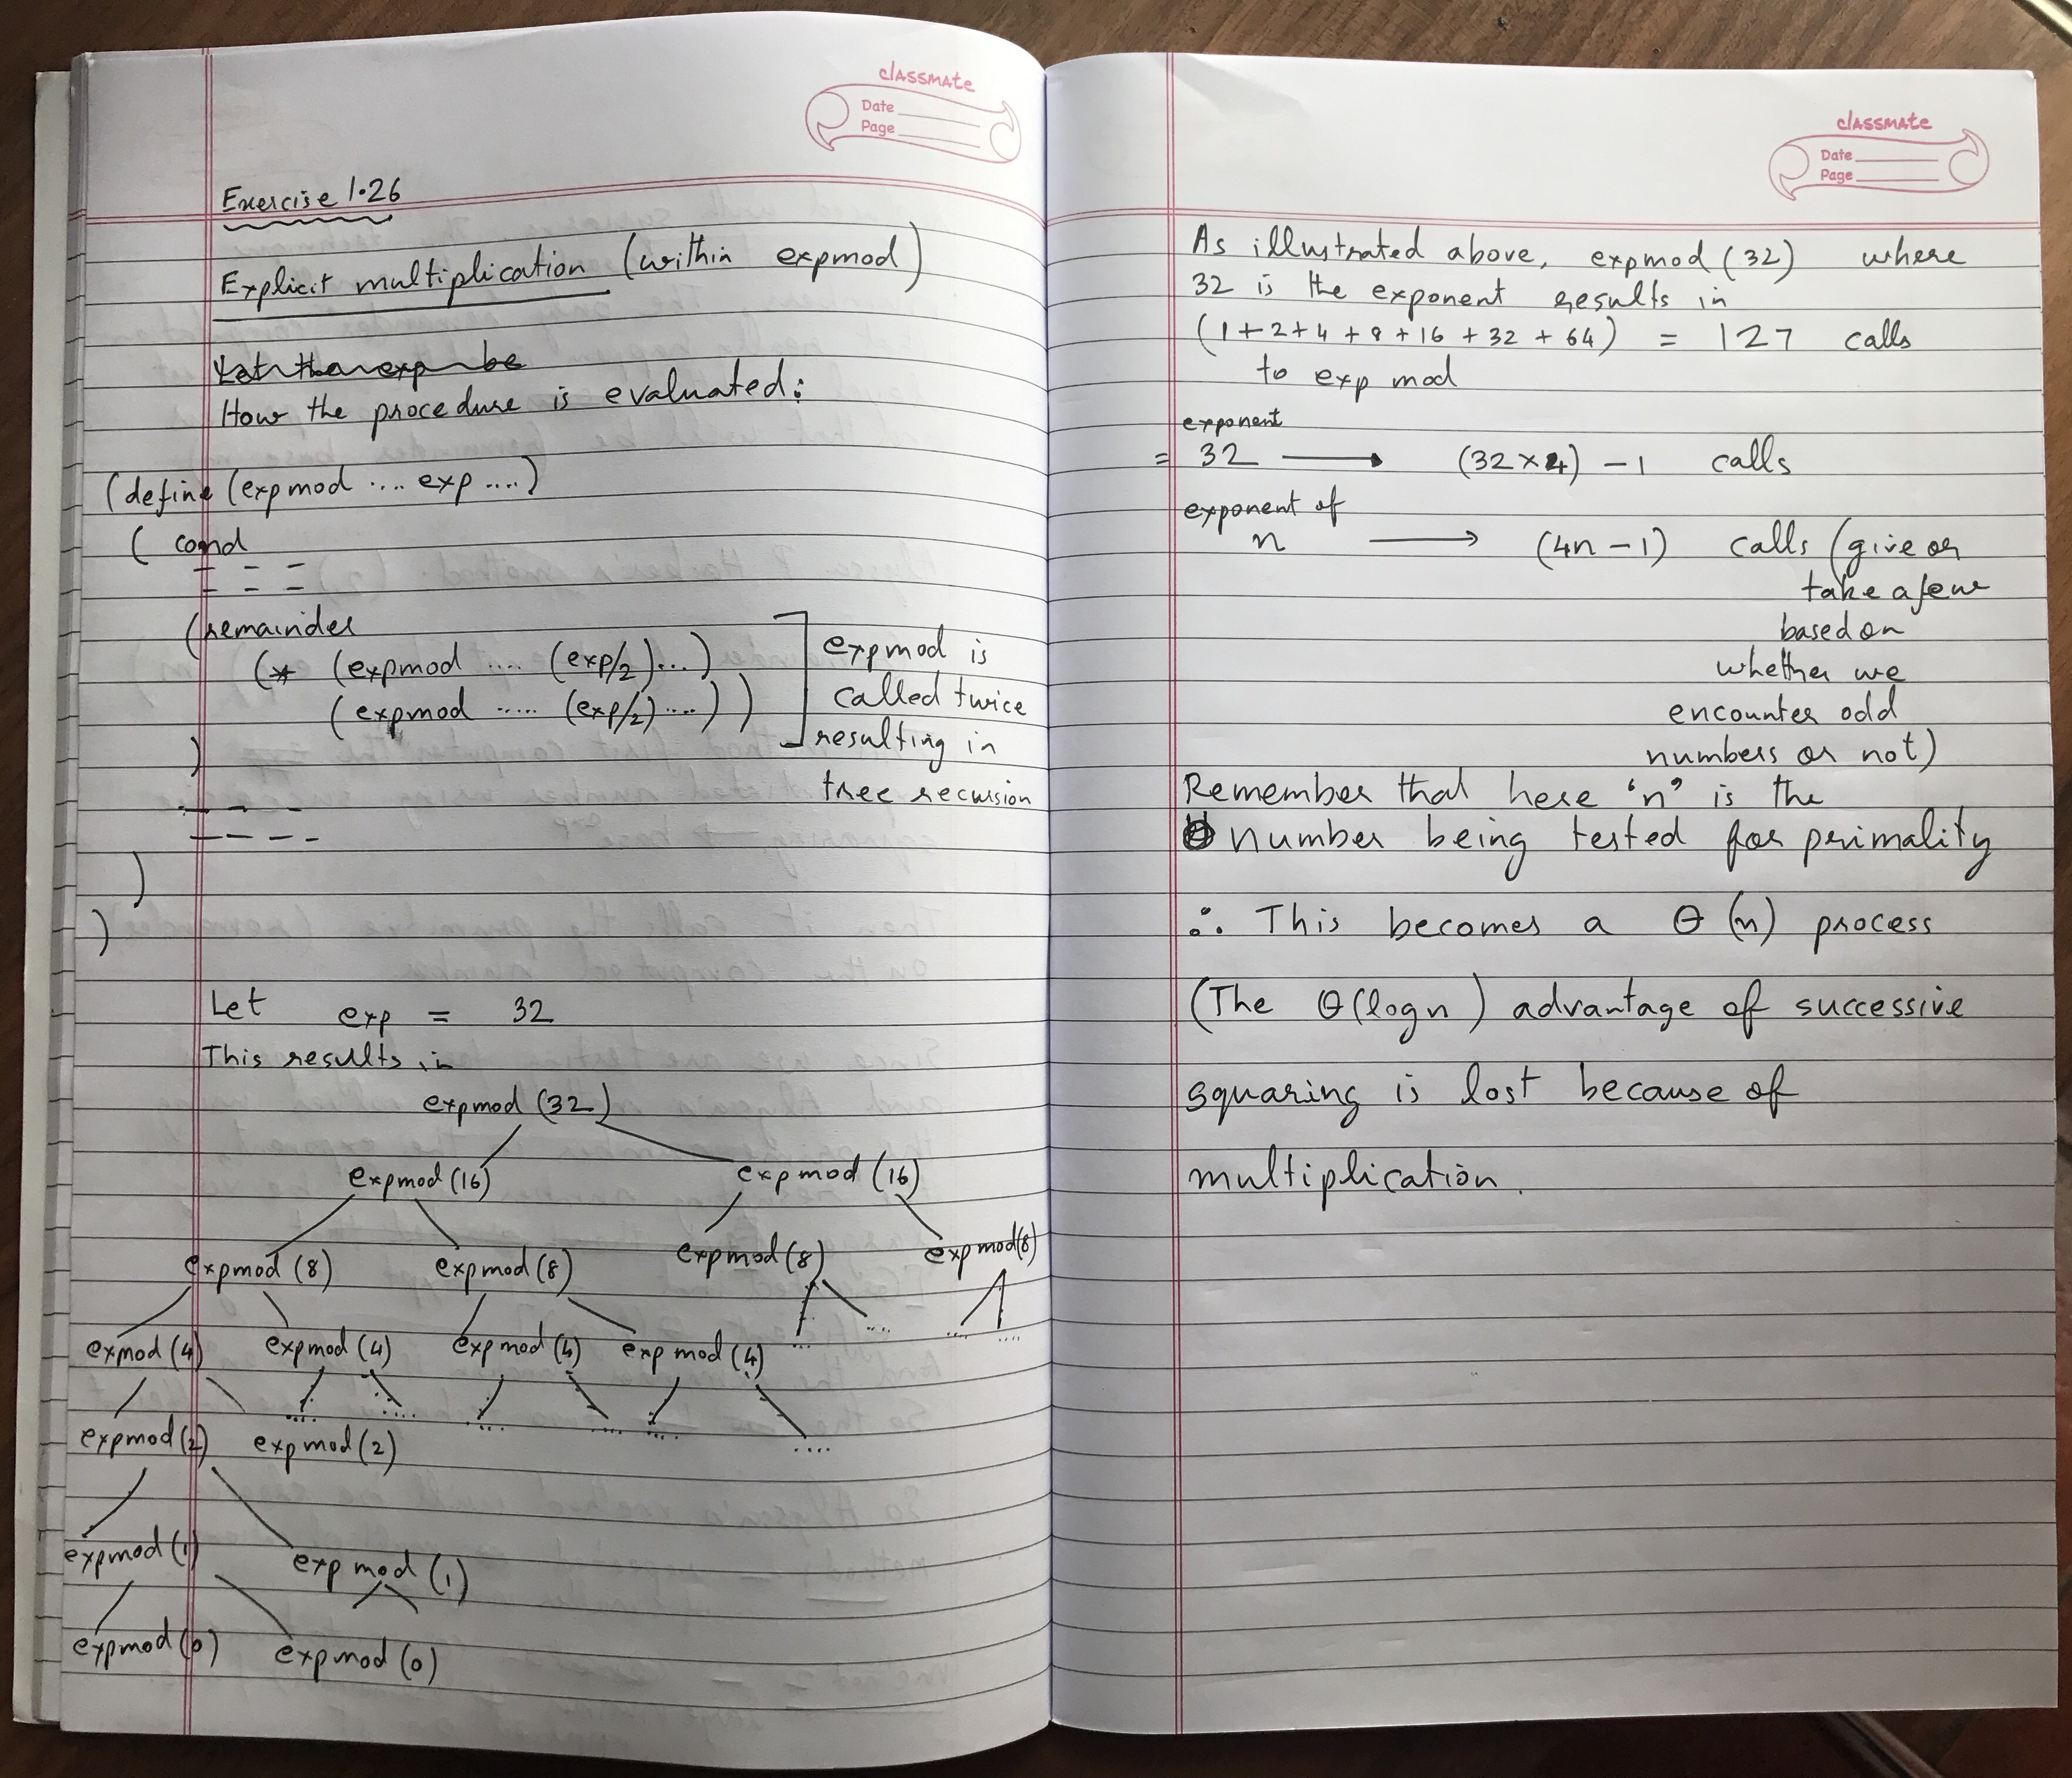 classmate
Date
Page
Exercise 1.26
Explicit multiplication (within expmod)
Let the exp be
How the procedure is evaluated:
(define (expmod .... exp ....)
( cond
(remainder
(* (expmod .... (exp/2)...)
(expmod ..... (exp/2)....) )
)
)
)
expmod is
called twice
resulting in
tree recursion
Let exp = 32
This results in
expmod (32)
expmod (16) expmod (16)
expmod (8) expmod (8) expmod (8) expmod (8)
exmod (4) expmod (4) expmod (4) expmod (4)
expmod (2) expmod (2)
expmod (1) expmod (1)
expmod (0) expmod (0)
classmate
Date
Page
As illustrated above, expmod (32) where
32 is the exponent results in
(1+2+4+8+16+32+64) = 127 calls
to exp mod
exponent
= 32 ⟶ (32×4) - 1 calls
exponent of
n ⟶ (4n-1) calls (give or
take a few
based on
whether we
encounter odd
numbers or not)
Remember that here 'n' is the
number being tested for primality
∴ This becomes a θ (n) process
(The θ(logn) advantage of successive
squaring is lost because of
multiplication.